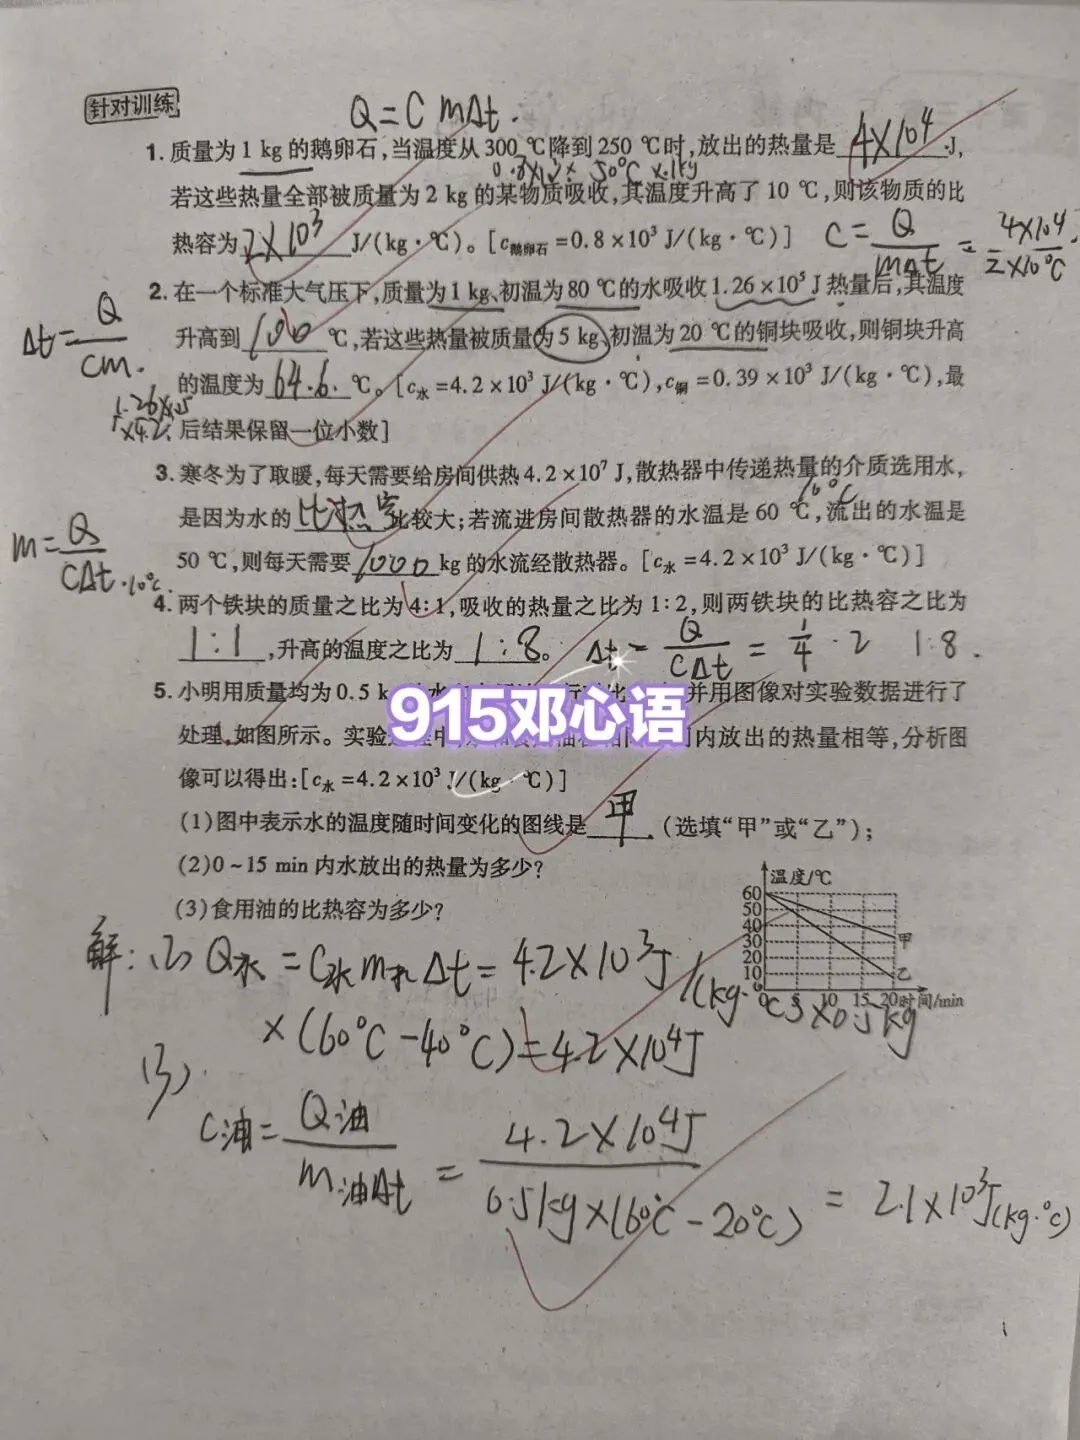 针对训练
Q=CmΔt.
1.质量为1 kg的鹅卵石,当温度从300 ℃降到250 ℃时,放出的热量是 4×10⁴ J,
若这些热量全部被质量为2 kg的某物质吸收,其温度升高了10 ℃,则该物质的比
热容为 2×10³ J/(kg·℃)。[c鹅卵石=0.8×10³ J/(kg·℃)]
C=Q/mΔt=4×10⁴/2×10℃
2.在一个标准大气压下,质量为1 kg、初温为80 ℃的水吸收1.26×10⁵ J热量后,其温度
升高到 100 ℃,若这些热量被质量为5 kg、初温为20 ℃的铜块吸收,则铜块升高
Δt=Q/cm.
的温度为 64.6. ℃。[c水=4.2×10³ J/(kg·℃),c铜=0.39×10³ J/(kg·℃),最
后结果保留一位小数]
3.寒冬为了取暖,每天需要给房间供热4.2×10⁷ J,散热器中传递热量的介质选用水,
10℃
是因为水的 比热容 比较大;若流进房间散热器的水温是60 ℃,流出的水温是
m=Q/CΔt·10℃.
50 ℃,则每天需要 1000 kg的水流经散热器。[c水=4.2×10³ J/(kg·℃)]
4.两个铁块的质量之比为4:1,吸收的热量之比为1:2,则两铁块的比热容之比为
1:1 ,升高的温度之比为 1:8 。 Δt=Q/CΔt=1/4·2 1:8.
5.小明用质量均为0.5 k 并用图像对实验数据进行了
915邓心语
处理,如图所示。实验 内放出的热量相等,分析图
像可以得出:[c水=4.2×10³ J/(kg·℃)]
(1)图中表示水的温度随时间变化的图线是 甲 (选填“甲”或“乙”);
(2)0~15 min内水放出的热量为多少?
(3)食用油的比热容为多少?
温度/℃
60
50
40
30
20
10
0 5 10 15 20 时间/min
甲
乙
解:(2)Q水=C水m水Δt=4.2×10³J/(kg·℃)×0.5kg
×(60℃-40℃)=4.2×10⁴J
(3).
C油=Q油/m油Δt=4.2×10⁴J/0.5kg×(60℃-20℃)=2.1×10³J/(kg·℃)